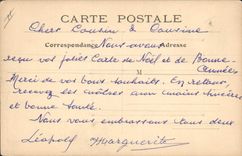 CARTE POSTALE
Chers Cousin & Cousine
Correspondance Adresse
Nous avons
reçu vos jolies Carte de Noël et de Bonne
Année
M
Merci de vos bons souhaits. En retour,
recevez les nôtres avec santé
et bonne santé.
Nous vous embrassons tous deux
Léopold Marguerite